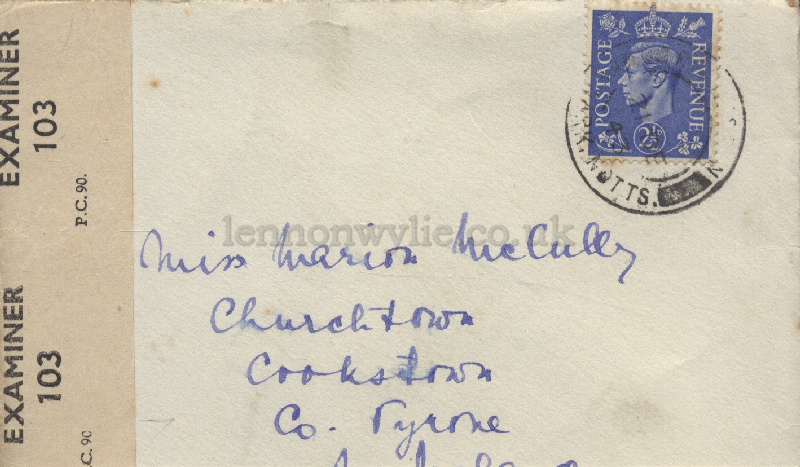 EXAMINER
103
P.C. 90.
EXAMINER
103
P.C. 90
POSTAGE
REVENUE
2½
NOTTS.
lennonwylie.co.uk
Miss Marion McCully
Churchtown
Cookstown
Co. Tyrone